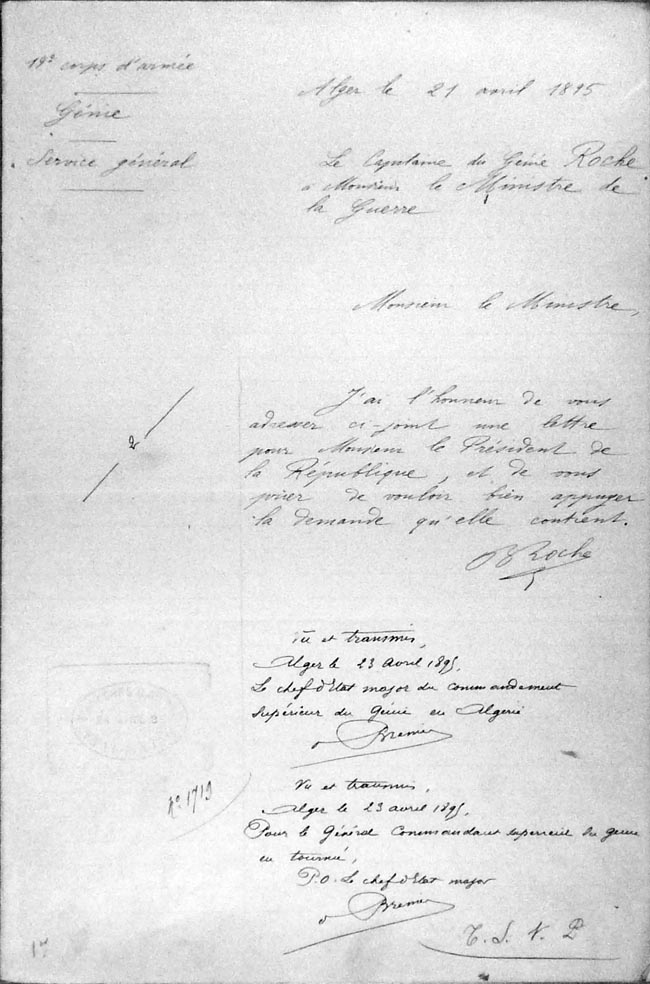 19e corps d'armée
Génie
Service général
Alger le 21 avril 1895
Le Capitaine du Génie Roche
à Monsieur le Ministre de
la Guerre
Monsieur le Ministre,
J'ai l'honneur de vous
adresser ci-joint une lettre
pour Monsieur le Président de
la République, et de vous
prier de vouloir bien appuyer
la demande qu'elle contient.
Roche
2
Vu et transmis,
Alger le 23 avril 1895,
Le chef d'Etat major du Commandement
supérieur du Génie en Algérie
N° 1719
Vu et transmis,
Alger le 23 avril 1895,
Pour le Général Commandant supérieur du génie
en tournée,
P.O. Le chef d'Etat major
T. S. V. P
1er